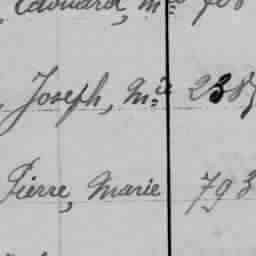 Edouard, Mie 708
Joseph, Mie 238
Pierre, Marie 793